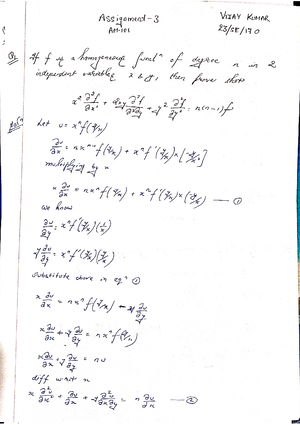 Assignment-3
VIJAY KUMAR
AM-101
23/SE/170
Q1 If f is a homogeneous funcⁿ of degree n in 2
independent variables x & y, then prove that
x² ∂²f/∂x² + 2xy ∂²f/∂x∂y + y² ∂²f/∂y² = n(n-1)f
Let u = xⁿ f(y/x)
∂u/∂x = n xⁿ⁻¹ f(y/x) + xⁿ f'(y/x) × [-y/x²]
multiplying by x
x ∂u/∂x = n xⁿ f(y/x) + xⁿ f'(y/x) × (-y/x) — ①
we know
∂u/∂y = xⁿ f'(y/x) (1/x)
y ∂u/∂y = xⁿ f'(y/x) (y/x)
substitute above in eqⁿ ①
x ∂u/∂x = n xⁿ f(y/x) - y ∂u/∂y
x ∂u/∂x + y ∂u/∂y = n xⁿ f(y/x)
x ∂u/∂x + y ∂u/∂y = nu
diff w.r.t x
x ∂²u/∂x² + ∂u/∂x + y ∂²u/∂x∂y = n ∂u/∂x — ②